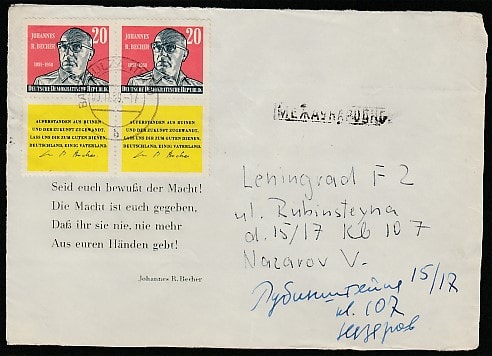 JOHANNES R. BECHER 20
1891 · 1958
DEUTSCHE DEMOKRATISCHE REPUBLIK
JOHANNES R. BECHER 20
1891 · 1958
DEUTSCHE DEMOKRATISCHE REPUBLIK
AUFERSTANDEN AUS RUINEN
UND DER ZUKUNFT ZUGEWANDT,
LASS UNS DIR ZUM GUTEN DIENEN,
DEUTSCHLAND, EINIG VATERLAND.
AUFERSTANDEN AUS RUINEN
UND DER ZUKUNFT ZUGEWANDT,
LASS UNS DIR ZUM GUTEN DIENEN,
DEUTSCHLAND, EINIG VATERLAND.
МЕЖДУНАРОДНОЕ
Seid euch bewußt der Macht!
Die Macht ist euch gegeben,
Daß ihr sie nie, nie mehr
Aus euren Händen gebt!
Johannes R. Becher
Leningrad F 2
ul. Rubinsteyna
d. 15/17 Kb 107
Nazarov V.
15/17
107